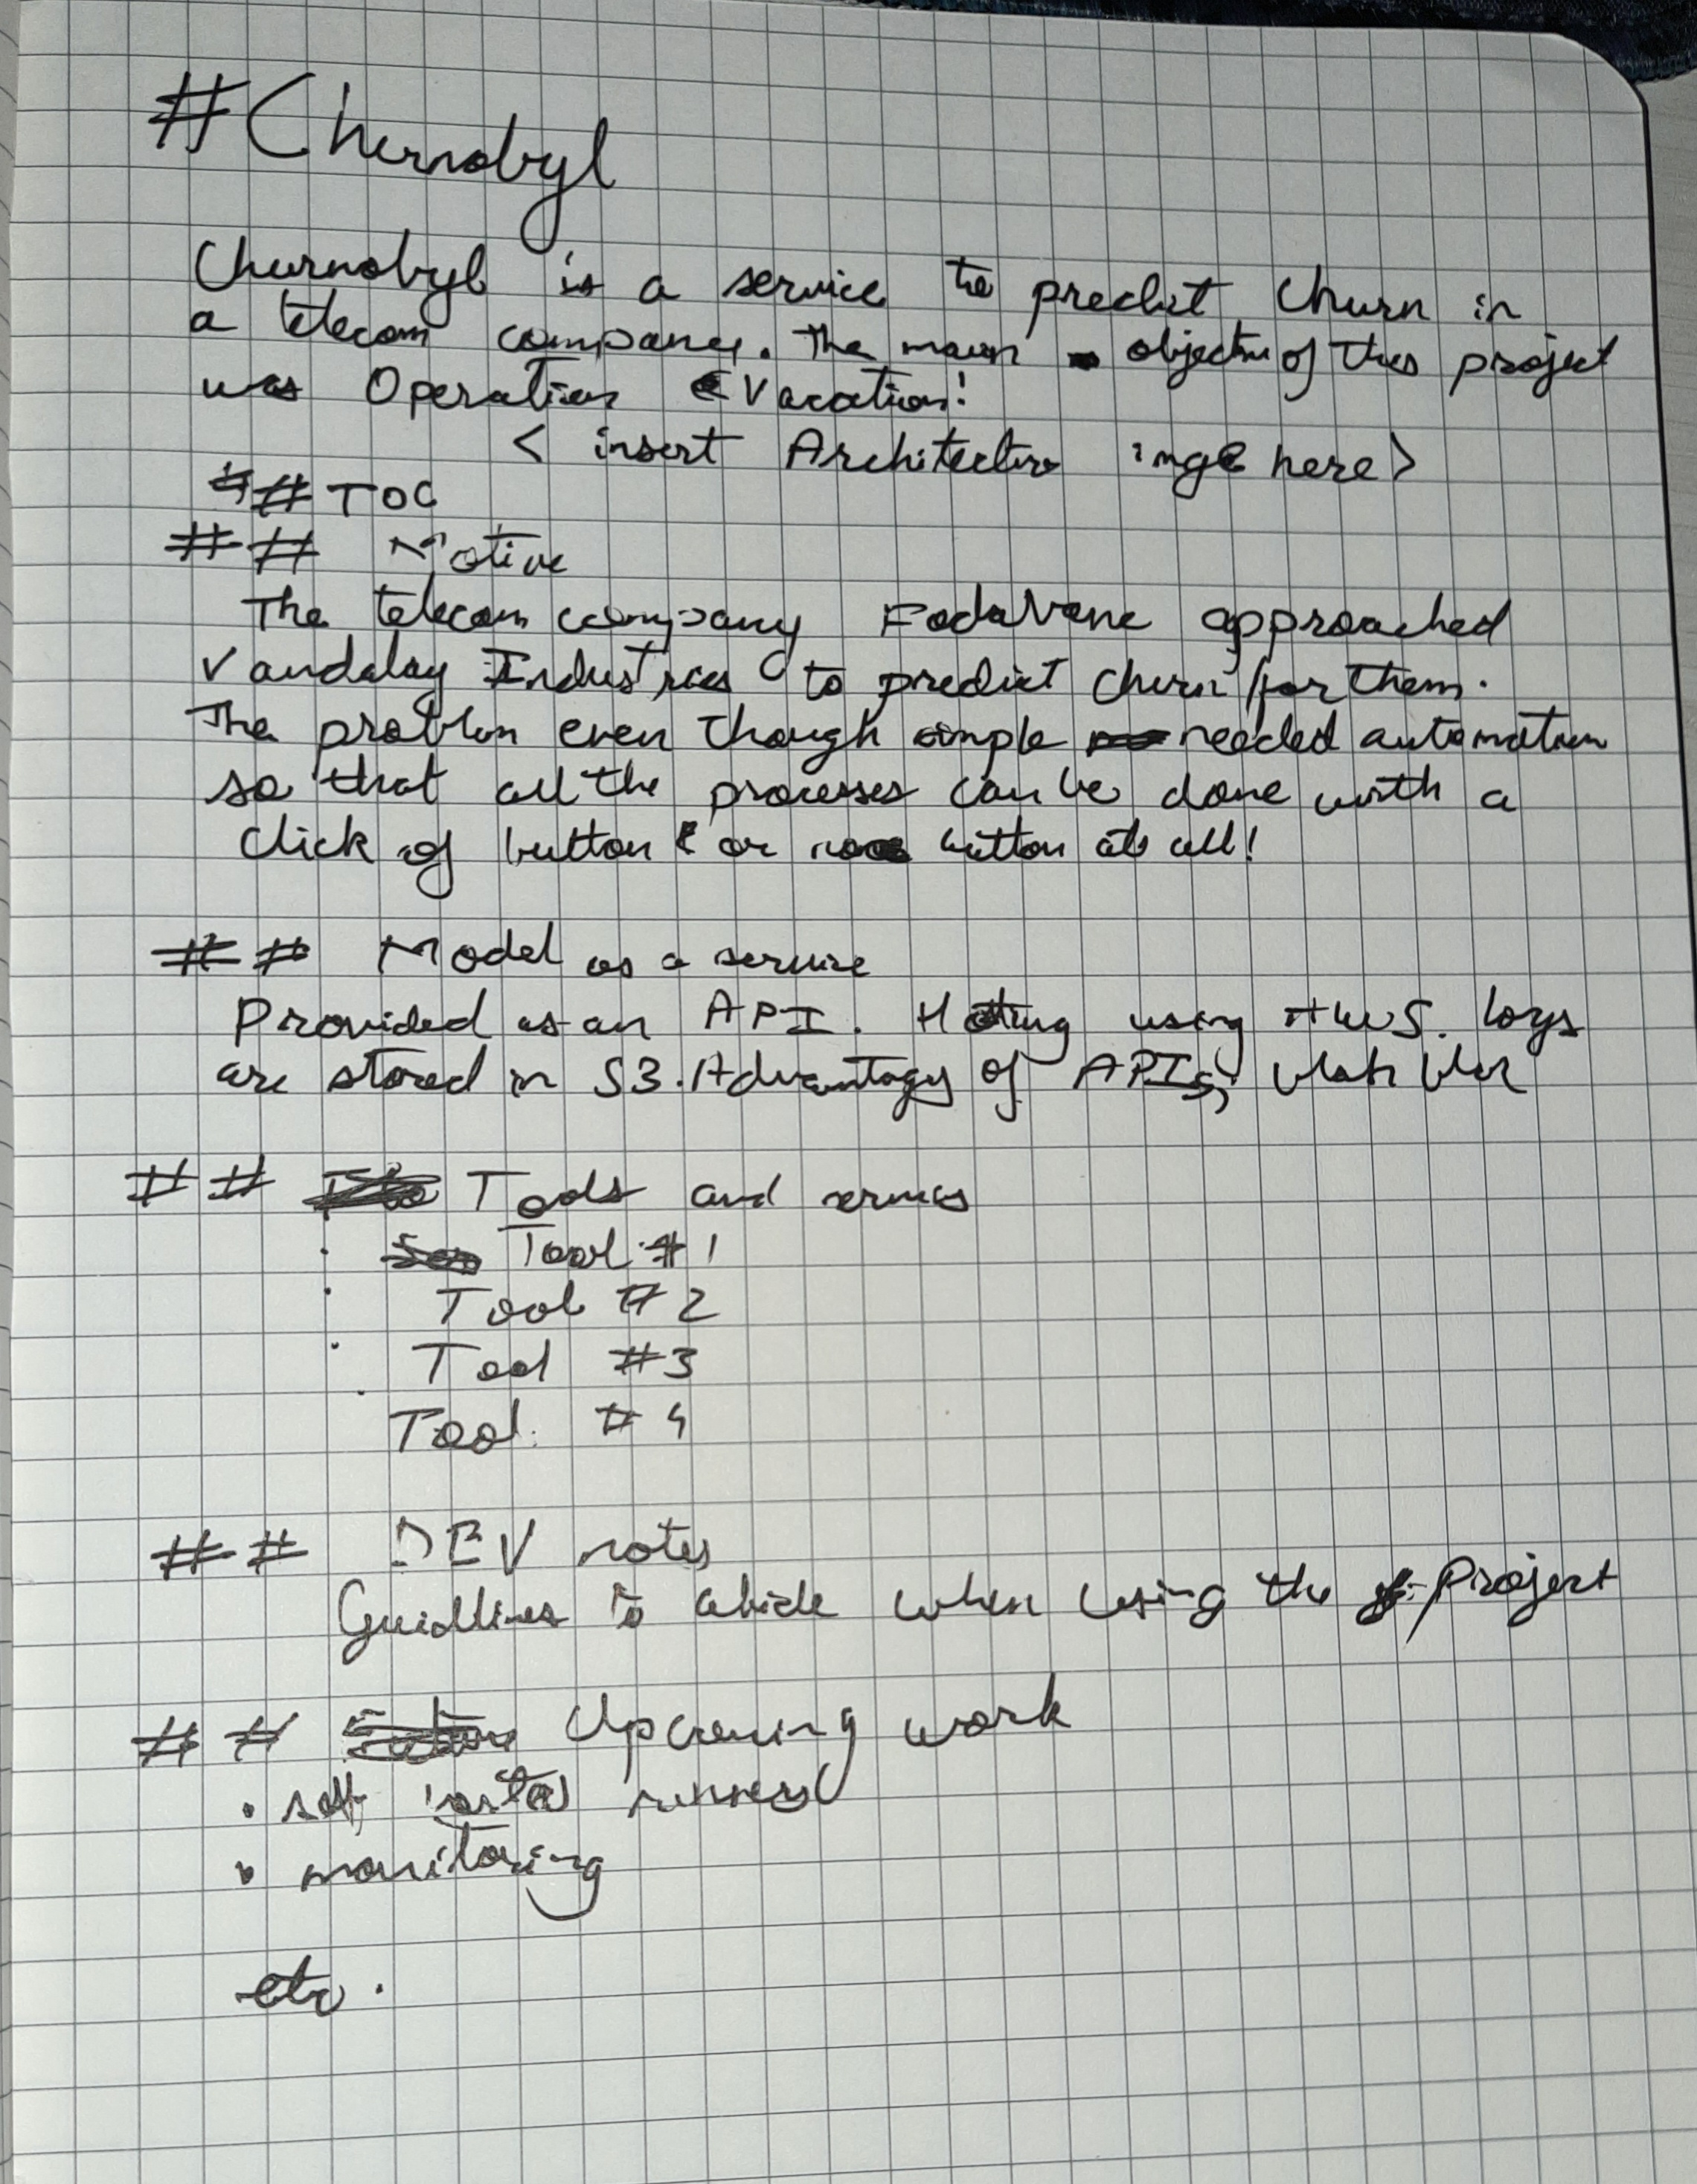 #Chernobyl
Churnobyl is a service to predict churn in
a telecom company. The main objective of this project
was Operation Vacation!
< insert Architecture image here>
## TOC
## Motive
The telecom company Fodavone approached
Vandalay Industries to predict churn for them.
The problem even though simple needed automation
so that all the processes can be done with a
click of button or no button at all!
## Model as a service
Provided as an API. Hosting using AWS. Logs
are stored in S3. Advantages of APIs, blah blah
## Tools and services
· Tool #1
· Tool #2
· Tool #3
· Tool #4
## DEV notes
Guidlines to abide when using the project
## Upcoming work
· self hosted runners
· monitoring
etc.